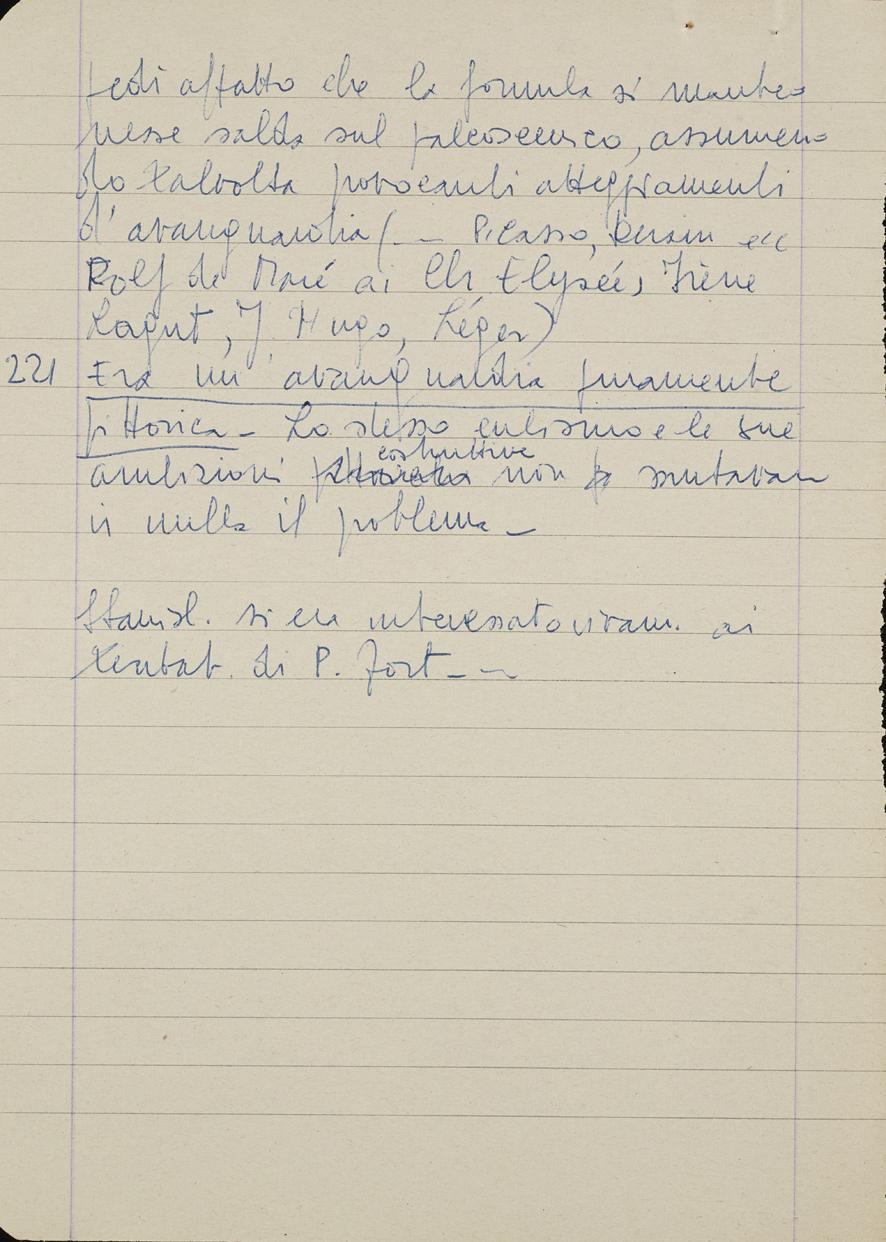 pedì affatto che la formula si mante=
nesse salda sul palcoscenico, assumen=
do talvolta provocanti atteggiamenti
d'avanguardia (__ Picasso, Derain ecc
Rolf de Maré ai Ch Elysées, Irène
Lagut, J. Hugo, Léger)
221 Era un'avanguardia puramente
pittorica_ Lo stesso cubismo e le sue
costruttive
ambizioni non smutavan
in nulla il problema_
Stanisl. si era interessato vivam. ai
tentat. di P. Fort_ _ _